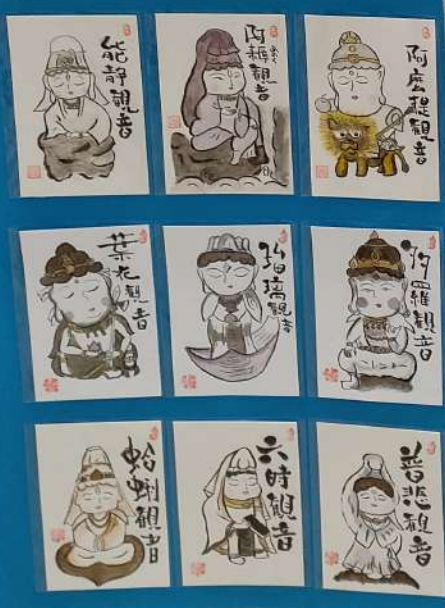 能静観音
阿耨観音
阿麼提観音
葉衣観音
瑠璃観音
多羅観音
蛤蜊観音
六時観音
普悲観音